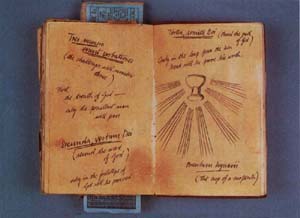 (the challenges will number
three)
First
the breath of God —
only the penitent man
will pass
Secunda,
(second the word
of God)
only in the footsteps of
God will he proceed
Tertia, semita Dei (third the path
of God)
Only in the leap from the lion's
head will he prove his worth
(The cup of a carpenter)